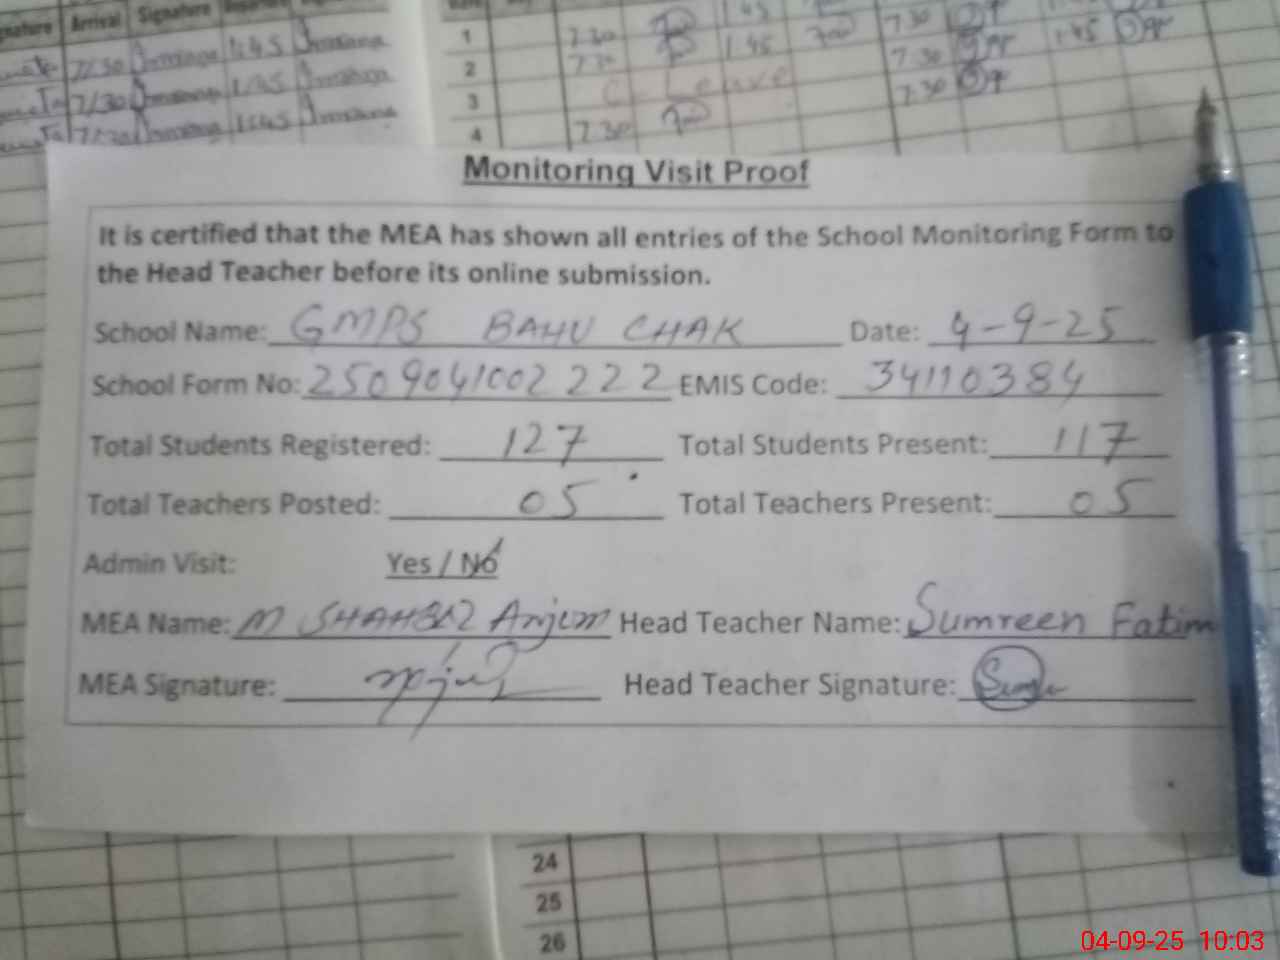 gnature Arrival Signature
7/30 1:45
7/30 1:45
7/30 1:45
1 7.30 1.45 7.30
2 7.30 1.45 7.30 1.45
3 C. Leave 7.30
4 7.30
Monitoring Visit Proof
It is certified that the MEA has shown all entries of the School Monitoring Form to
the Head Teacher before its online submission.
School Name: GMPS BAHU CHAK Date: 4-9-25
School Form No: 2509041002222 EMIS Code: 34110384
Total Students Registered: 127 Total Students Present: 117
Total Teachers Posted: 05 Total Teachers Present: 05
Admin Visit: Yes / No
MEA Name: M SHAHBAZ Anjum Head Teacher Name: Sumreen Fatim
MEA Signature: Head Teacher Signature:
24
25
26
04-09-25 10:03